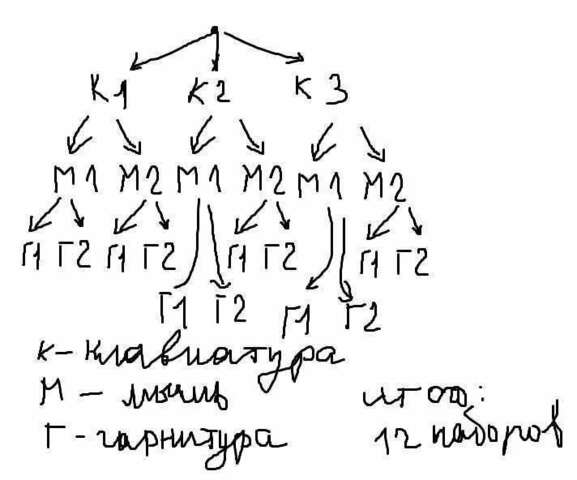 К1 К2 К3
М1 М2 М1 М2 М1 М2
Г1 Г2 Г1 Г2 Г1 Г2 Г1 Г2
Г1 Г2 Г1 Г2
К - клавиатура
М - мышь
Г - гарнитура
итого:
12 наборов